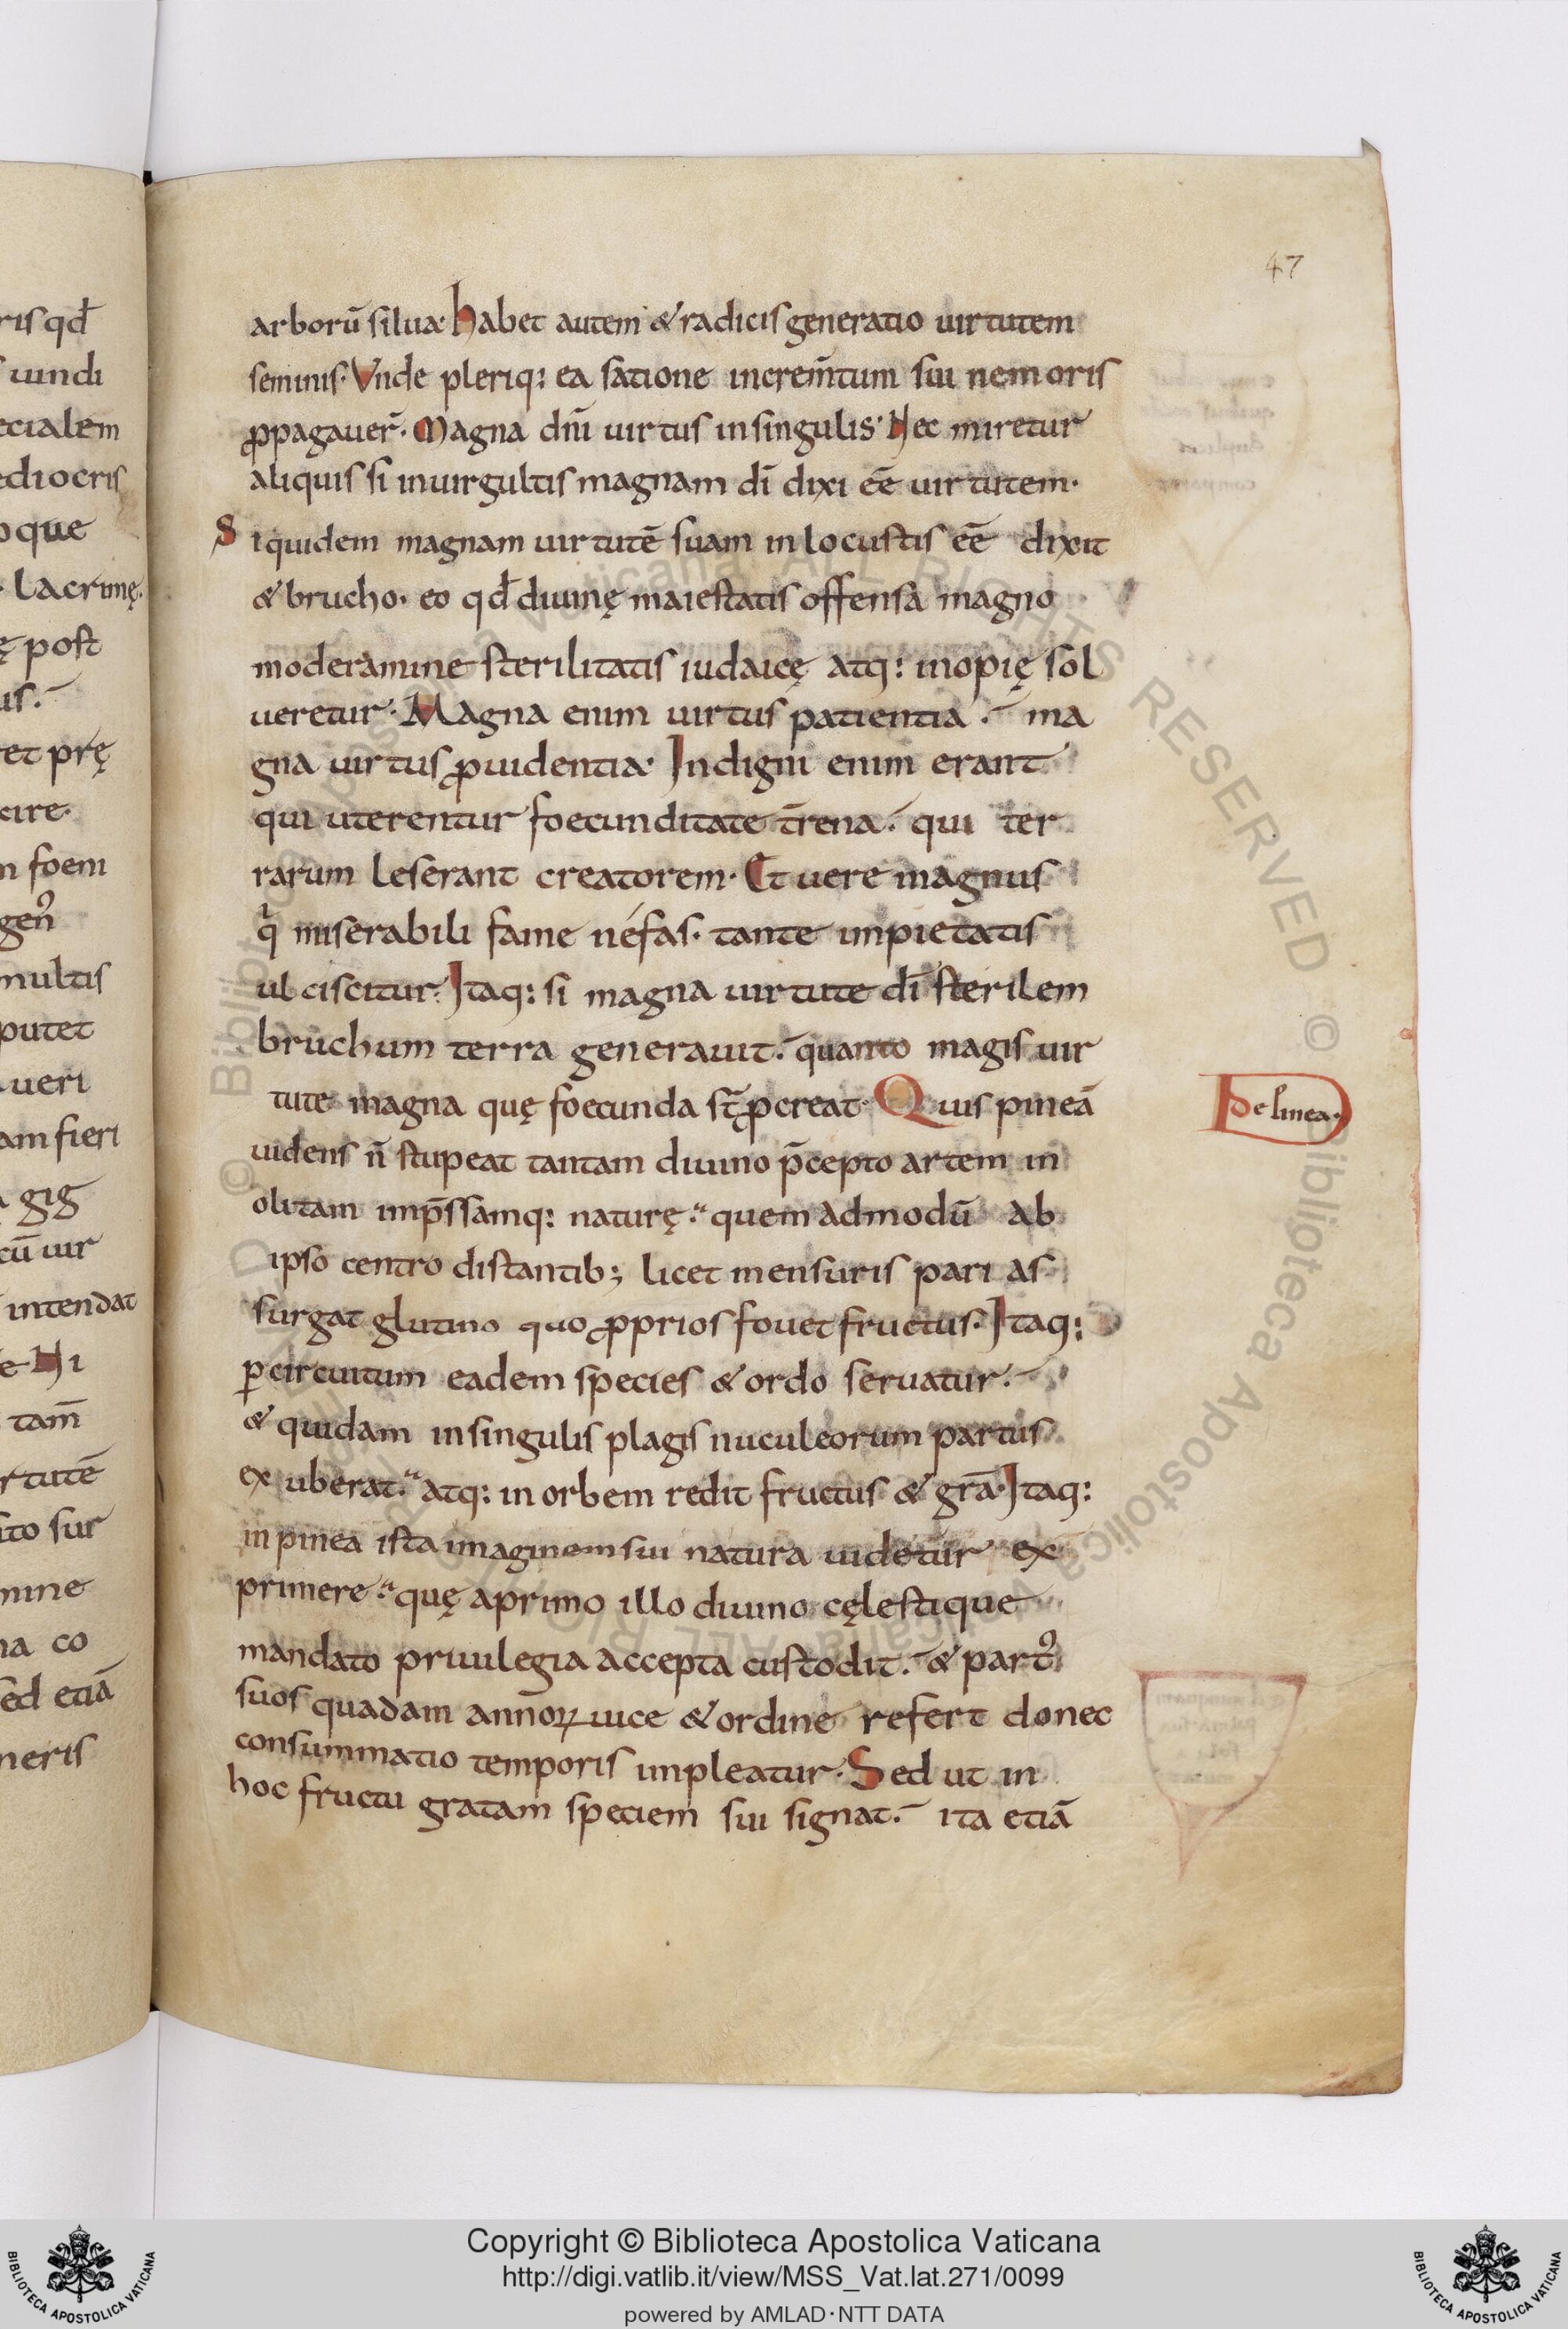 47
arborū silua. habet autem & radicis generatio uirtutem
seminis. Vnde pleriq: ea satione increm̄tum sui nemoris
ꝓpagauer̄. Magna dn̄i uirtus insingulis. Nec miretur
aliquis si inuirgultis magnam dī dixi eē uirtutem.
Siquidem magnam uirtutē suam in locustis eē dixit
& brucho. eo qđ diuinę maiestatis offensa magno
moderamine sterilitatis iudaicę atq: inopię sol
ueretur. Magna enim uirtus patientia. ma
gna uirtus ꝓuidentia. Indigni enim erant
qui uterentur foecunditate t̄rena. qui ter
rarum leserant creatorem. Et uere magnus
qͥ miserabili fame néfas. tante impietatis
ulciscitur. Itaq: si magna uirtute dī sterilem
bruchum terra generauit. quanto magis uir
tute magna quę foecunda st̄ ꝓcreat. Quis pineā
uidens n̄ stupeat tantam diuino p̄cepto artem in
olitam imp̄ssamq: naturę. quemadmodū ab
ipso centro distantib; licet mensuris pari as
surgat glutino quo ꝓprios fouet fructus. Itaq:
ꝑ circuitum eadem species & ordo seruatur.
& quidam insingulis plagis nuculeorum partus
exuberat. atq: in orbem redit fructus & grā. Itaq:
in pinea ista imaginem sui natura uidetur ex
primere. quę aprimo illo diuino cęlestique
mandato priuilegia accepta custodit. & partꝰ
suos quadam annoꝝ uice & ordine refert donec
consummatio temporis impleatur. Sed ut in
hoc fructu gratam speciem sui signat. ita etiā
De linea.
ris qđ
uindi
ecialem
ediocris
que
lacrimę.
ę post
us.
et prę
cire.
foeni
genꝰ
multis
putet
ueri
am fieri
gig
cū uir
intendat
Ni
tam̄
rtutē
ito sur
mine
na co
sed etiā
neris
© Biblioteca Apostolica Vaticana ALL RIGHTS RESERVED © Biblioteca Apostolica Vaticana ALL RIG
BIBLIOTECA APOSTOLICA VATICANA
Copyright © Biblioteca Apostolica Vaticana
http://digi.vatlib.it/view/MSS_Vat.lat.271/0099
powered by AMLAD·NTT DATA
BIBLIOTECA APOSTOLICA VATICANA